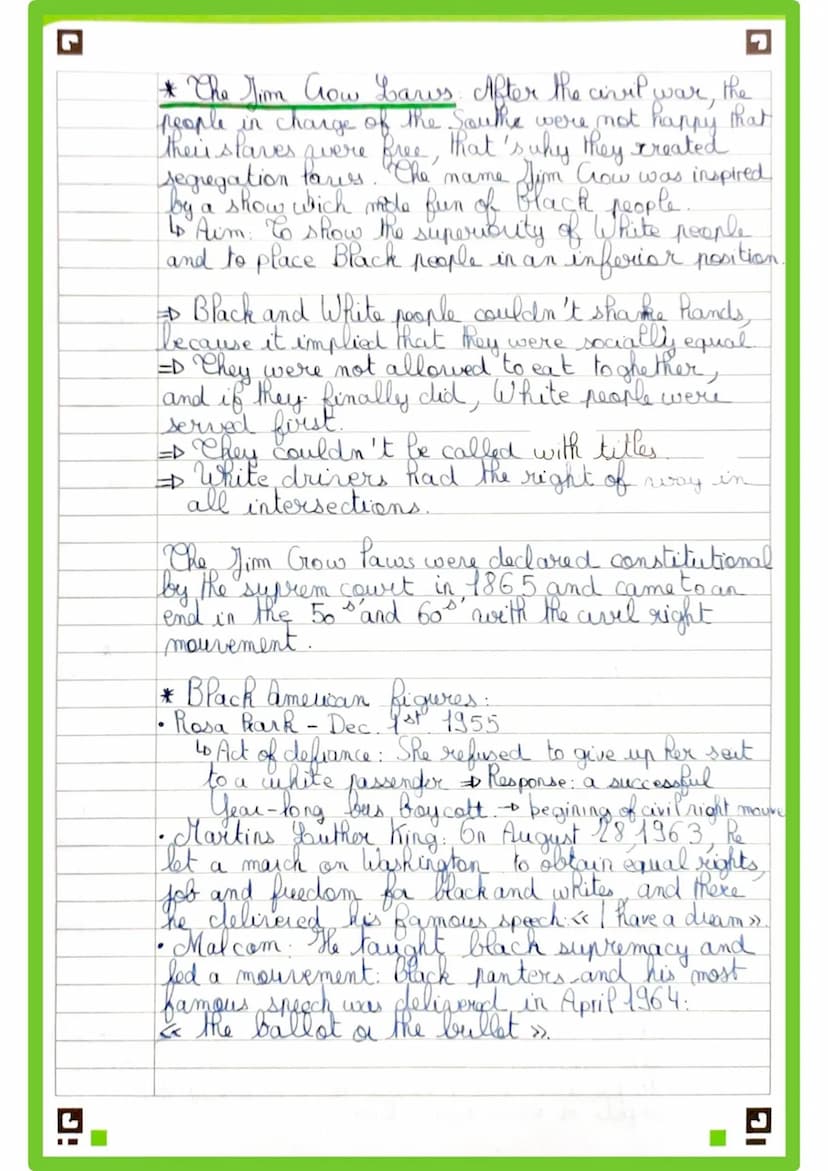 * The Jim Crow Laws: After the civil war, the
people in charge of the Southe were not happy that
their slaves were free, that's why they created
segregation laws. The name Jim Crow was inspired
by a show wich made fun of Black people.
↳ Aim: To show the superiority of White people
and to place Black people in an inferior position.
⇒ Black and White people couldn't shake hands,
because it implied that they were socially equal
⇒ They were not allowed to eat toghether,
and if they finally did, White people were
served first.
⇒ They couldn't be called with titles.
⇒ White drivers had the right of way in
all intersections.
The Jim Crow Laws were declared constitutional
by the suprem court in 1865 and came to an
end in the 50s' and 60s' with the civil right
mouvement.
* Black American figures:
• Rosa Park - Dec. 1st 1955
↳ Act of defiance: She refused to give up her seat
to a white passenger ⇒ Response: a successful
Year-long bus boycott. → begining of civil right mouve
• Martins Luther King: On August 28, 1963, he
let a march on Washington to obtain equal rights,
job and freedom for black and whites, and there
he delivered his famous speech: « I have a dream ».
• Malcom: He taught black supremacy and
led a mouvement: black panters and his most
famous speech was delivered in April 1964:
« the ballot or the bullet ».